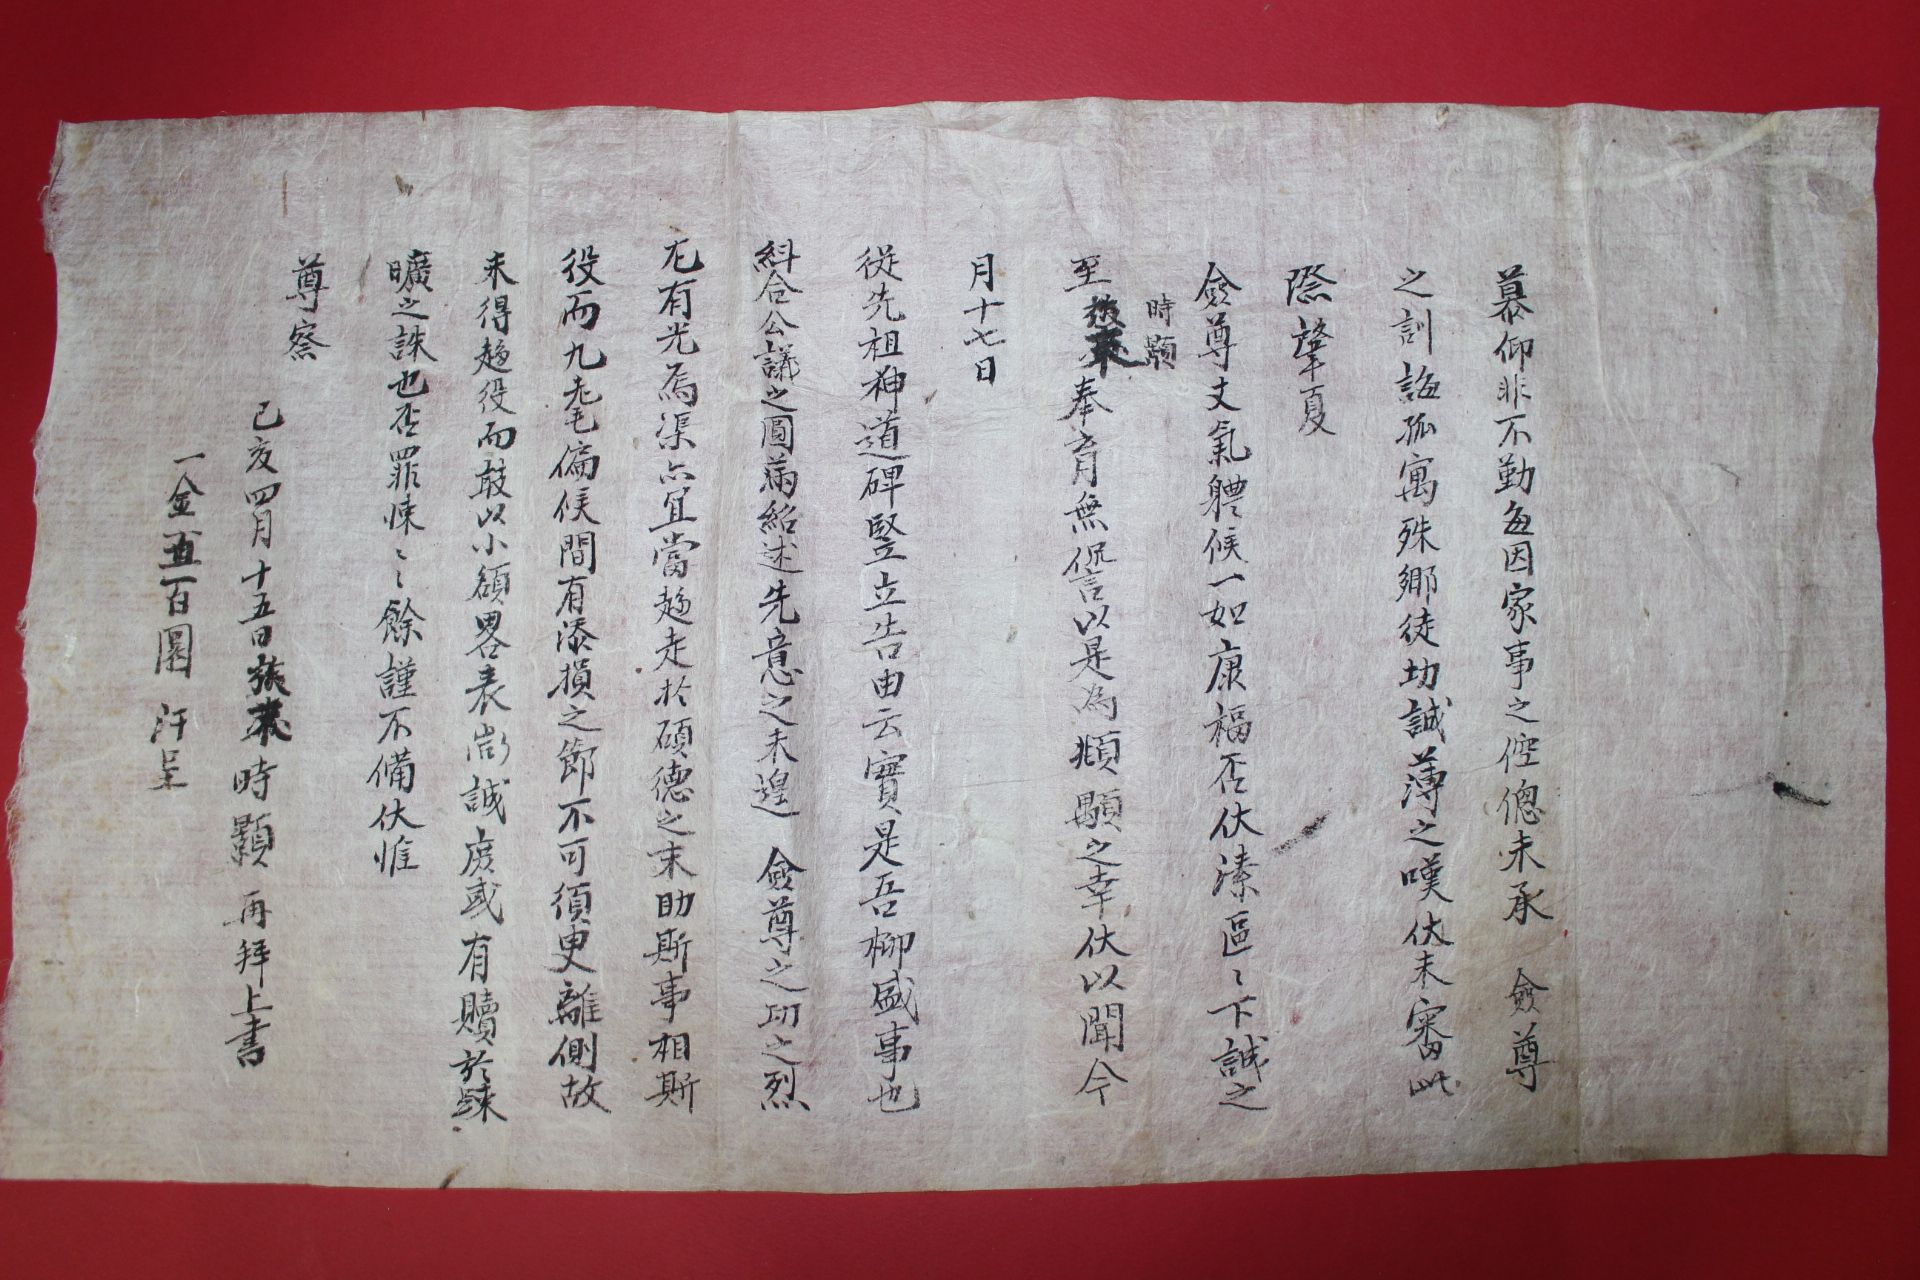 慕仰非不勤每因家事之倥傯未承 僉尊
之訓誨孤寓殊鄉徒切誠薄之嘆伏未審此
際肇夏
僉尊丈氣體候一如康福否伏溱區〻下誠之
至 時顯 奉育無諐以是為煩顒之幸伏以聞今
月十七日
從先祖神道碑竪立告由云實是吾柳盛事也
糾合公議之圓滿紹述先意之未遑 僉尊之功之烈
尤有光焉渠亦宜當趍走於碩德之末助斯事相斯
役而九耄偏候間有添損之節不可須臾離側故
未得趍役而敢以小額畧表微誠庶或有贖於疎
曠之誅也否罪悚〻餘謹不備伏惟
尊察
己亥四月十五日 時顯 再拜上書
一金五百圜 汗呈